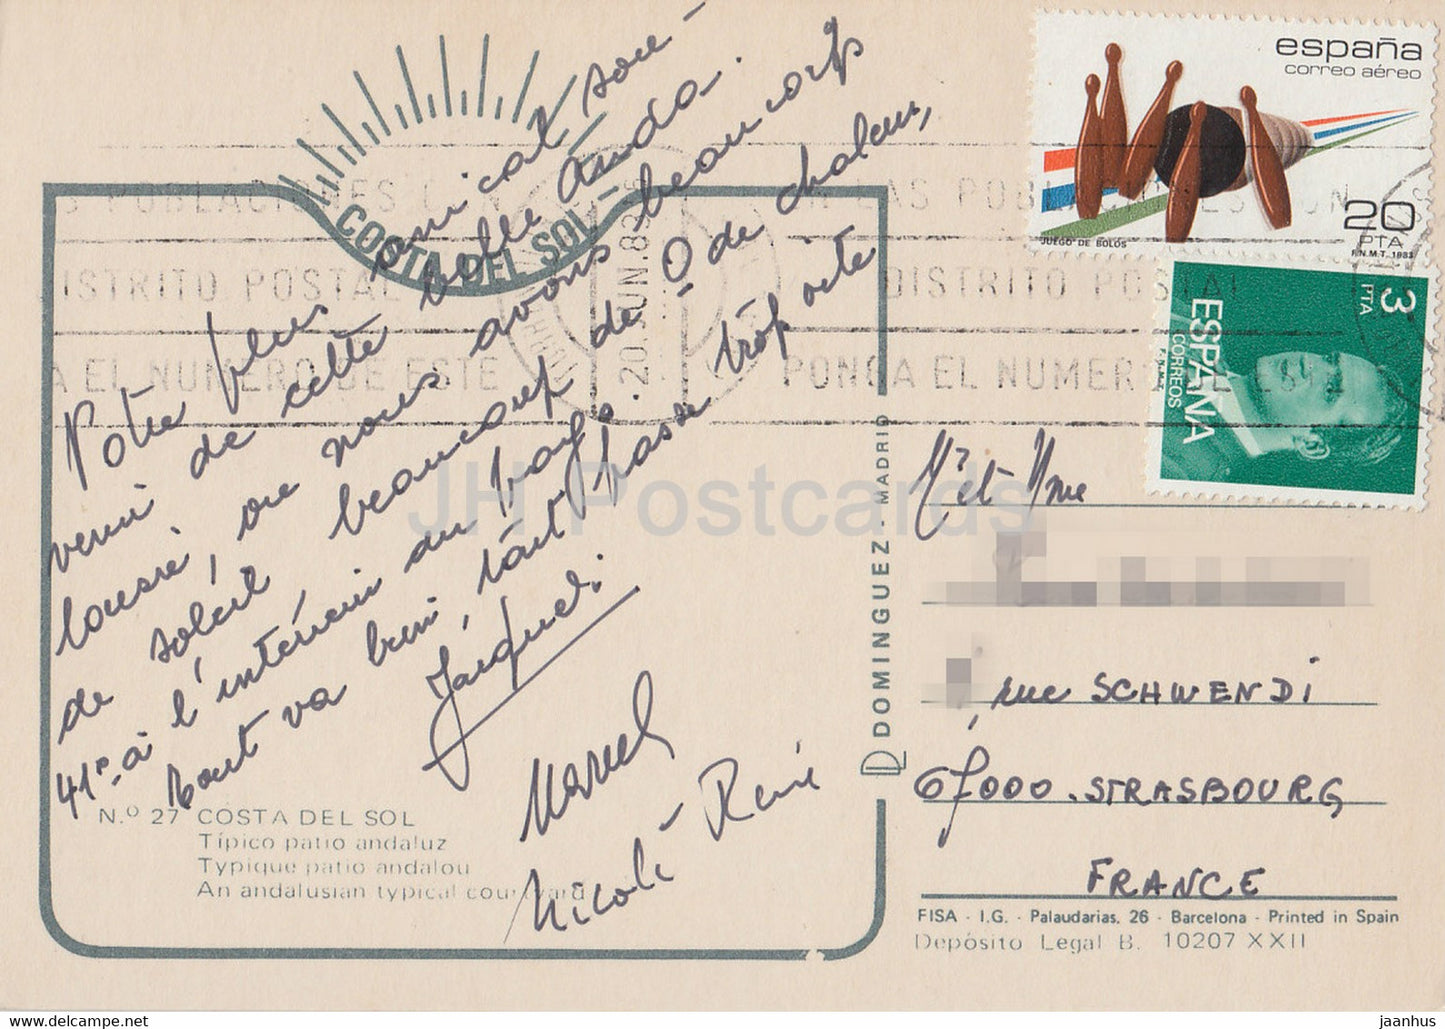 COSTA DEL SOL
Notre plus amical sou-
venir de cette belle Anda.
lousie, ou nous avons beaucoup
de soleil beaucoup de O de chaleur,
41° à l'intérieur du
tout va bien, tout passe trop vite
Jacquel.
Marcel
Nicole René
N.º 27 COSTA DEL SOL
Típico patio andaluz
Typique patio andalou
An andalusian typical courtyard
DOMINGUEZ - MADRID
españa
correo aéreo
20
PTA
JUEGO DE BOLOS
F.N.M.T. 1983
3
PTA
ESPAÑA
CORREOS
20.JUN.83
POBLACIONES CON
DISTRITO POSTAL
PONGA EL NUMERO DE ESTE
LAS POBLACIONES CON
DISTRITO POSTAL
PONGA EL NUMERO DE ESTE
Mr et Mme
, rue SCHWENDI
67000.STRASBOURG
FRANCE
FISA - I.G. - Palaudarias, 26 - Barcelona - Printed in Spain
Depósito Legal B. 10207 XXII
JH Postcards
www.delcampe.net
jaanhus